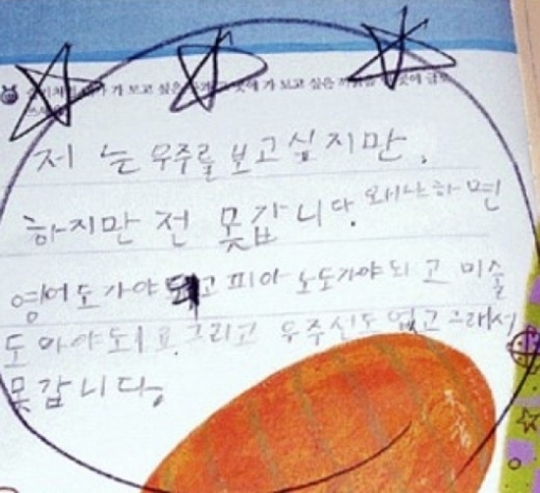 가 보고 싶은 가 보고 싶은 곳에
저 는 우주를 보고싶지만.
하지만 전 못갑니다. 왜냐하면
영어도가야되고 피아노도가야되고 미술
도 아야되 그리고 우주신도 없고 그래서
못갑니다.